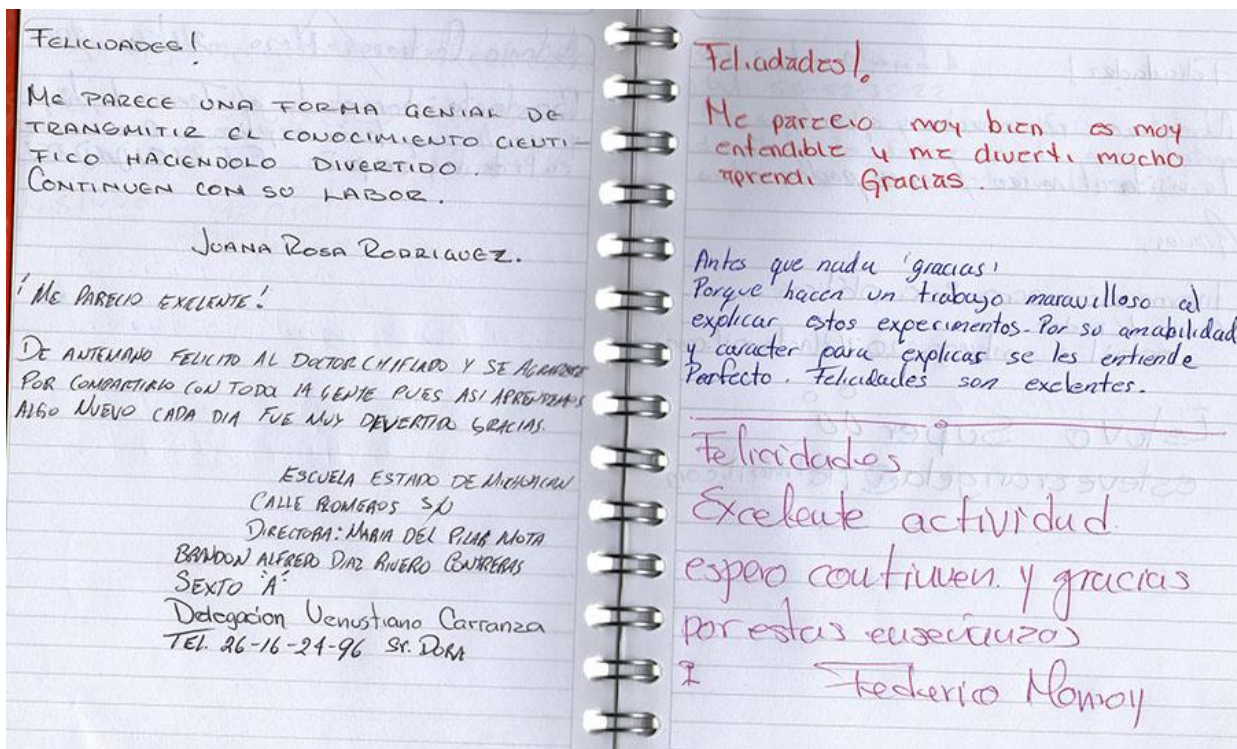 FELICIDADES!
ME PARECE UNA FORMA GENIAL DE
TRANSMITIR EL CONOCIMIENTO CIENTI-
FICO HACIENDOLO DIVERTIDO.
CONTINUEN CON SU LABOR.
JUANA ROSA RODRIGUEZ.
¡ME PARECIO EXELENTE!
DE ANTEMANO FELICITO AL DOCTOR CHIFLADO Y SE AGRADECE
POR COMPARTIRLO CON TODA LA GENTE PUES ASI APRENDEMOS
ALGO NUEVO CADA DIA FUE MUY DEVERTIDO GRACIAS.
ESCUELA ESTADO DE MICHOACAN
CALLE PLOMEROS S/N
DIRECTORA: MARIA DEL PILAR MOTA
BRANDON ALFREDO DIAZ RIVERO CONTRERAS
SEXTO "A"
Delegacion Venustiano Carranza
TEL. 26-16-24-96 Sr. DORA
Felicidades!.
Me parecio moy bien es moy
entendible y me diverti mocho
aprendi Gracias.
Antes que nada ¡gracias!
Porque hacen un trabajo maravilloso al
explicar estos experimentos. Por su amabilidad
y caracter para explicas se les entiende
Perfecto. Felicidades son exelentes.
Felicidades
Excelente actividad.
espero continuen y gracias
por estas enseñanzas
Federico